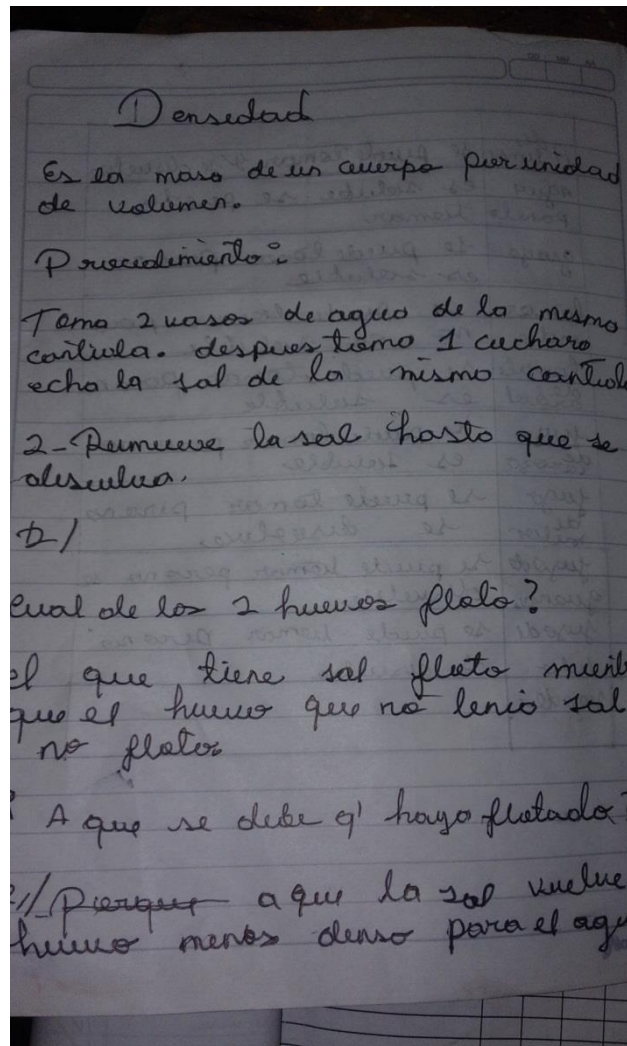 Densedad
Es la masa de un cuerpo por unidad
de volumen.
Procedimiento:
Toma 2 vasos de agua de la misma
despues tomo 1 cuchara
echa la sal de la misma
2-Remueve la sal hasta que se
disuelva.
Cual de los 2 huevos flota?
el que tiene sal flota
que el huevo que no tenia sal
no flota
A que se debe q' haya flotado?
a que la sal vuelve
huevo menos denso para el agu